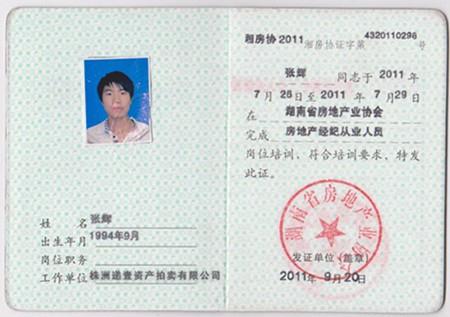 姓　名 张辉
出生年月 1994年9月
岗位职务
工作单位 株洲递壹资产拍卖有限公司
湘房协2011 湘房协证字第 4320110298 号
张辉 同志于 2011 年
7 月 26 日至 2011 年 7 月 29 日
在 湖南省房地产业协会
完成 房地产经纪从业人员
岗位培训，符合培训要求，特发
此证。
湖南省房地产业协会
发证单位（盖章）
2011 年 9 月 20 日